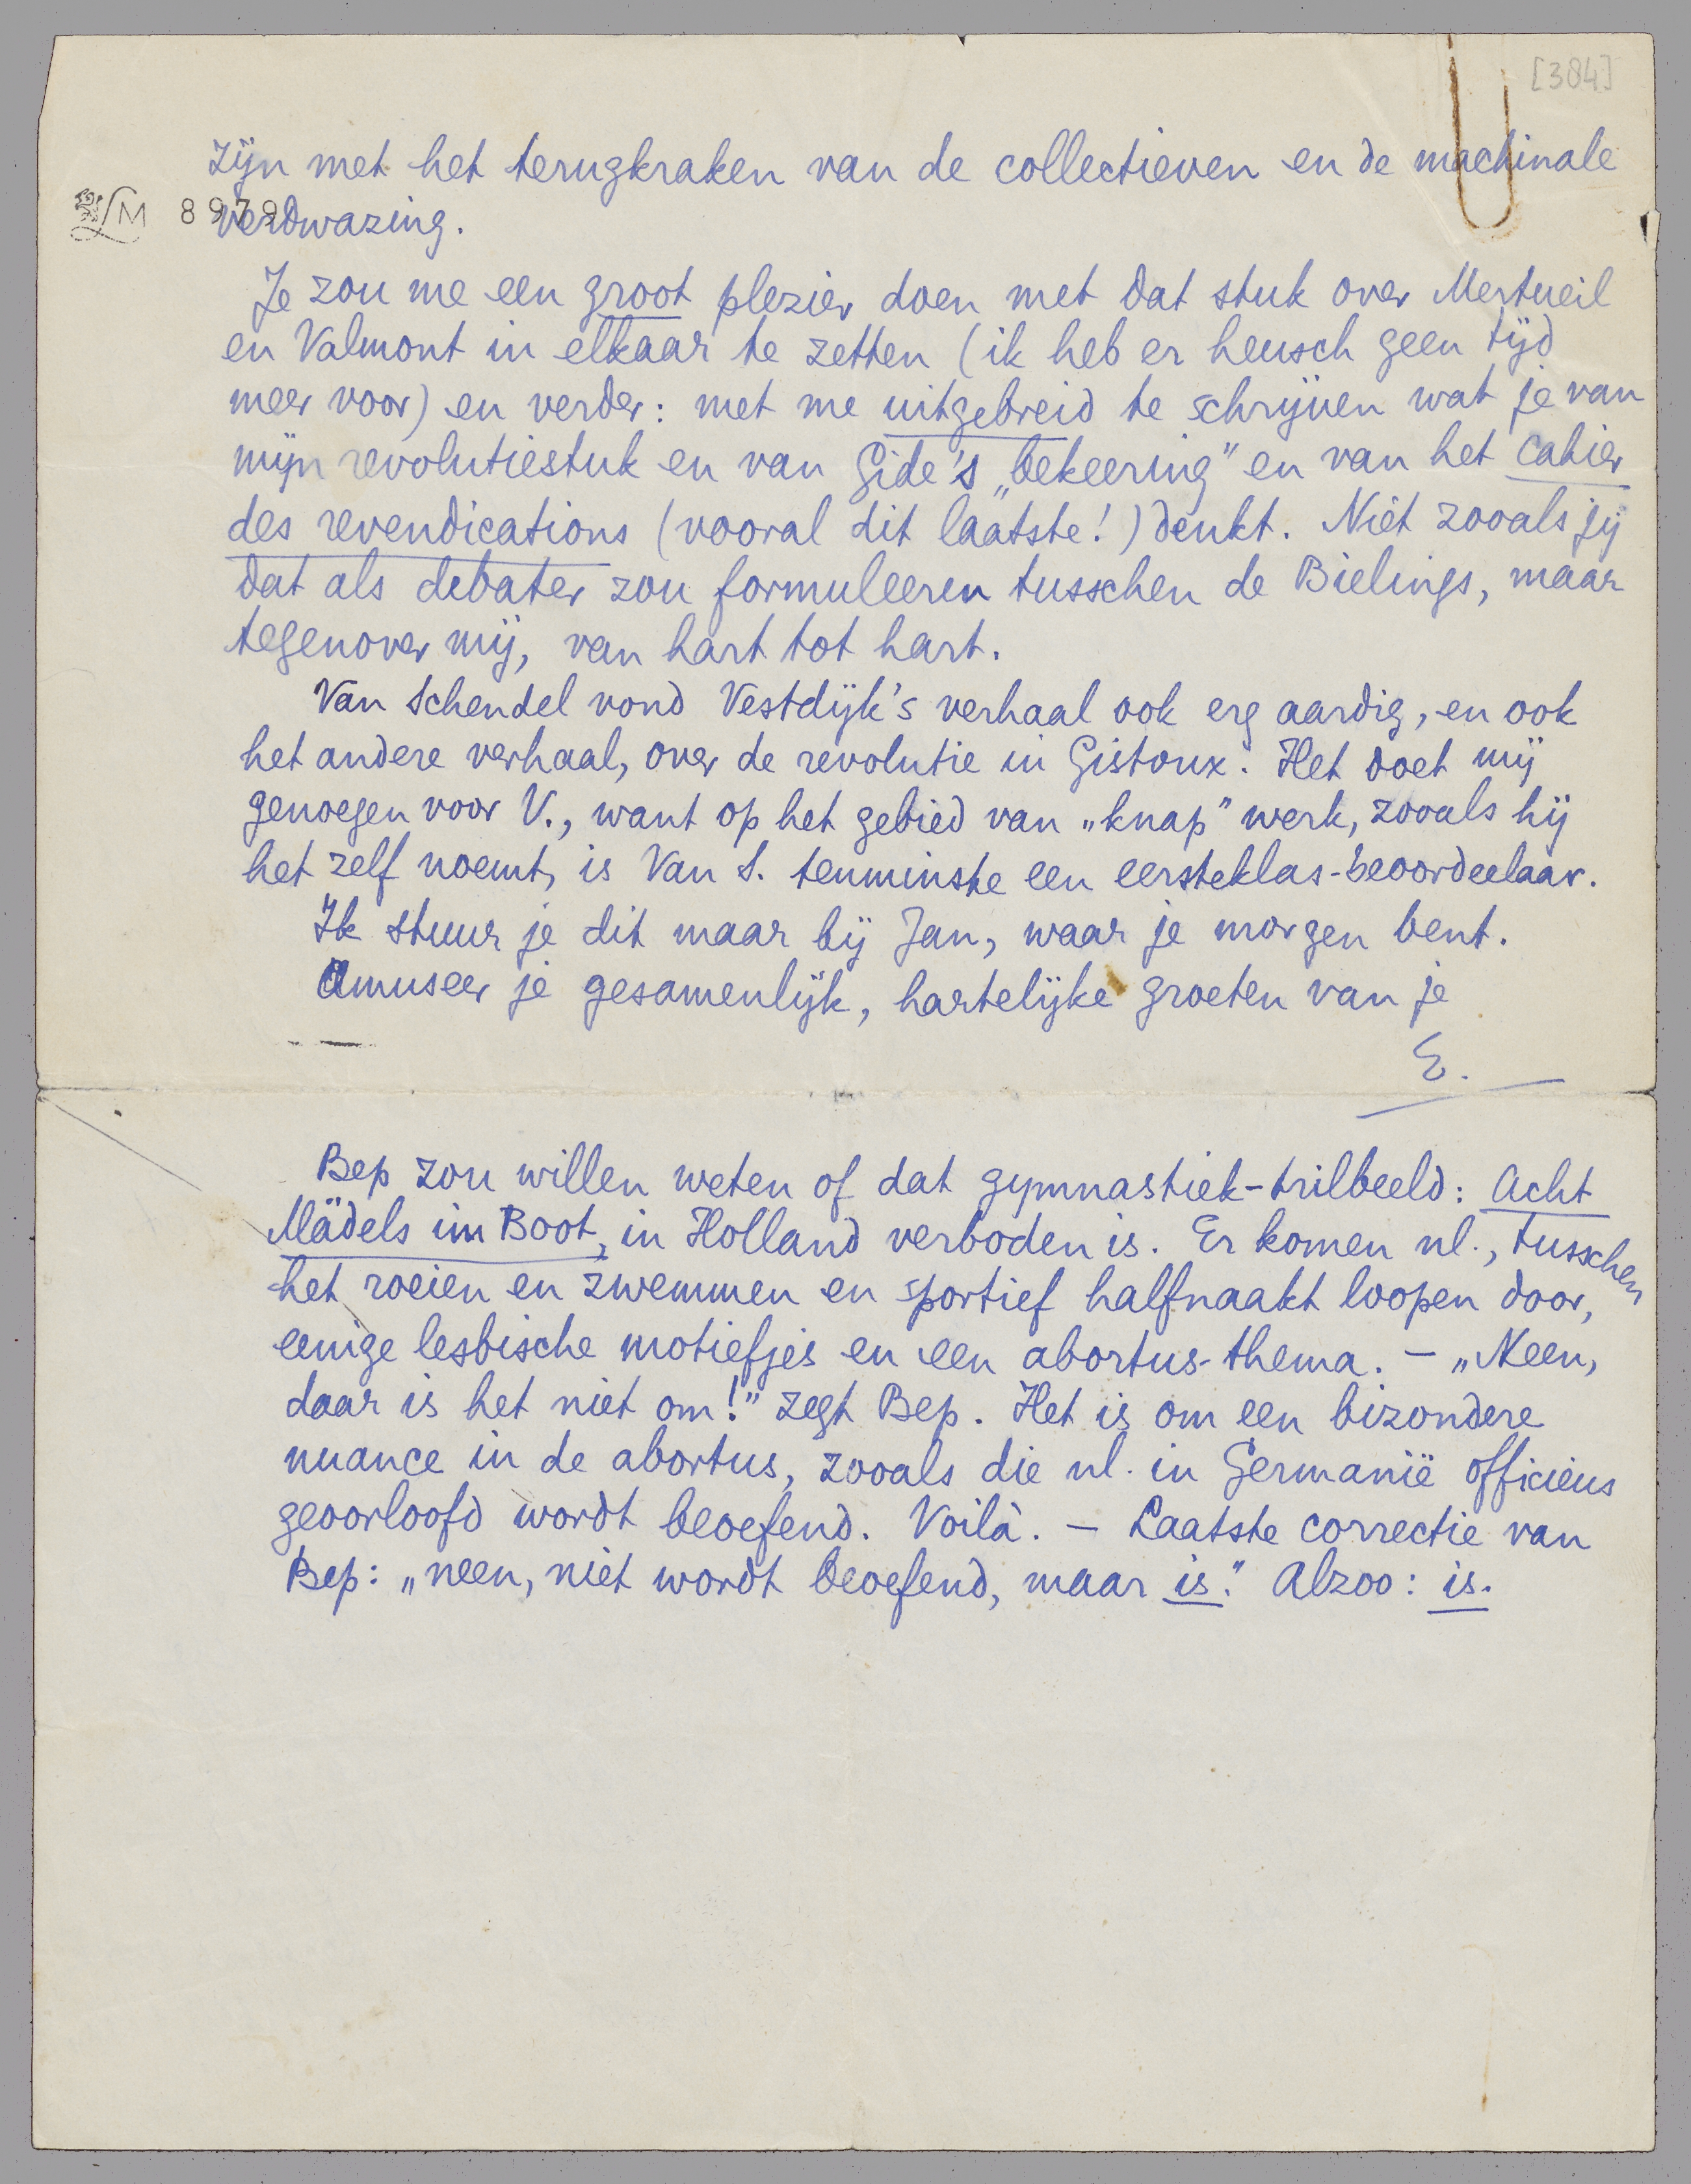 [384]
zijn met het terugkraken van de collectieven en de machinale
LM 8979
verdwazing.
Je zou me een groot plezier doen met dat stuk over Merteuil
en Valmont in elkaar te zetten (ik heb er heusch geen tijd
meer voor) en verder: met me uitgebreid te schrijven wat je van
mijn revolutiestuk en van Gide's „bekeering” en van het cahier
des revendications (vooral dit laatste!) denkt. Niet zooals jij
dat als debater zou formuleeren tusschen de Bielings, maar
tegenover mij, van hart tot hart.
Van Schendel vond Vestdijk's verhaal ook erg aardig, en ook
het andere verhaal, over de revolutie in Gistoux. Het doet mij
genoegen voor V., want op het gebied van „knap” werk, zooals hij
het zelf noemt, is Van S. tenminste een eersteklas-beoordeelaar.
Ik stuur je dit maar bij Jan, waar je morgen bent.
Amuseer je gesamenlijk, hartelijke groeten van je
E.
Bep zou willen weten of dat gymnastiek-trilbeeld: Acht
Mädels im Boot, in Holland verboden is. Er komen nl., tusschen
het roeien en zwemmen en sportief halfnaakt loopen door,
eenige lesbische motiefjes en een abortus-thema. – „Neen,
daar is het niet om!” zegt Bep. Het is om een bizondere
nuance in de abortus, zooals die nl. in Germanië officieus
geoorloofd wordt beoefend. Voilà. – Laatste correctie van
Bep: „neen, niet wordt beoefend, maar is.” Alzoo: is.